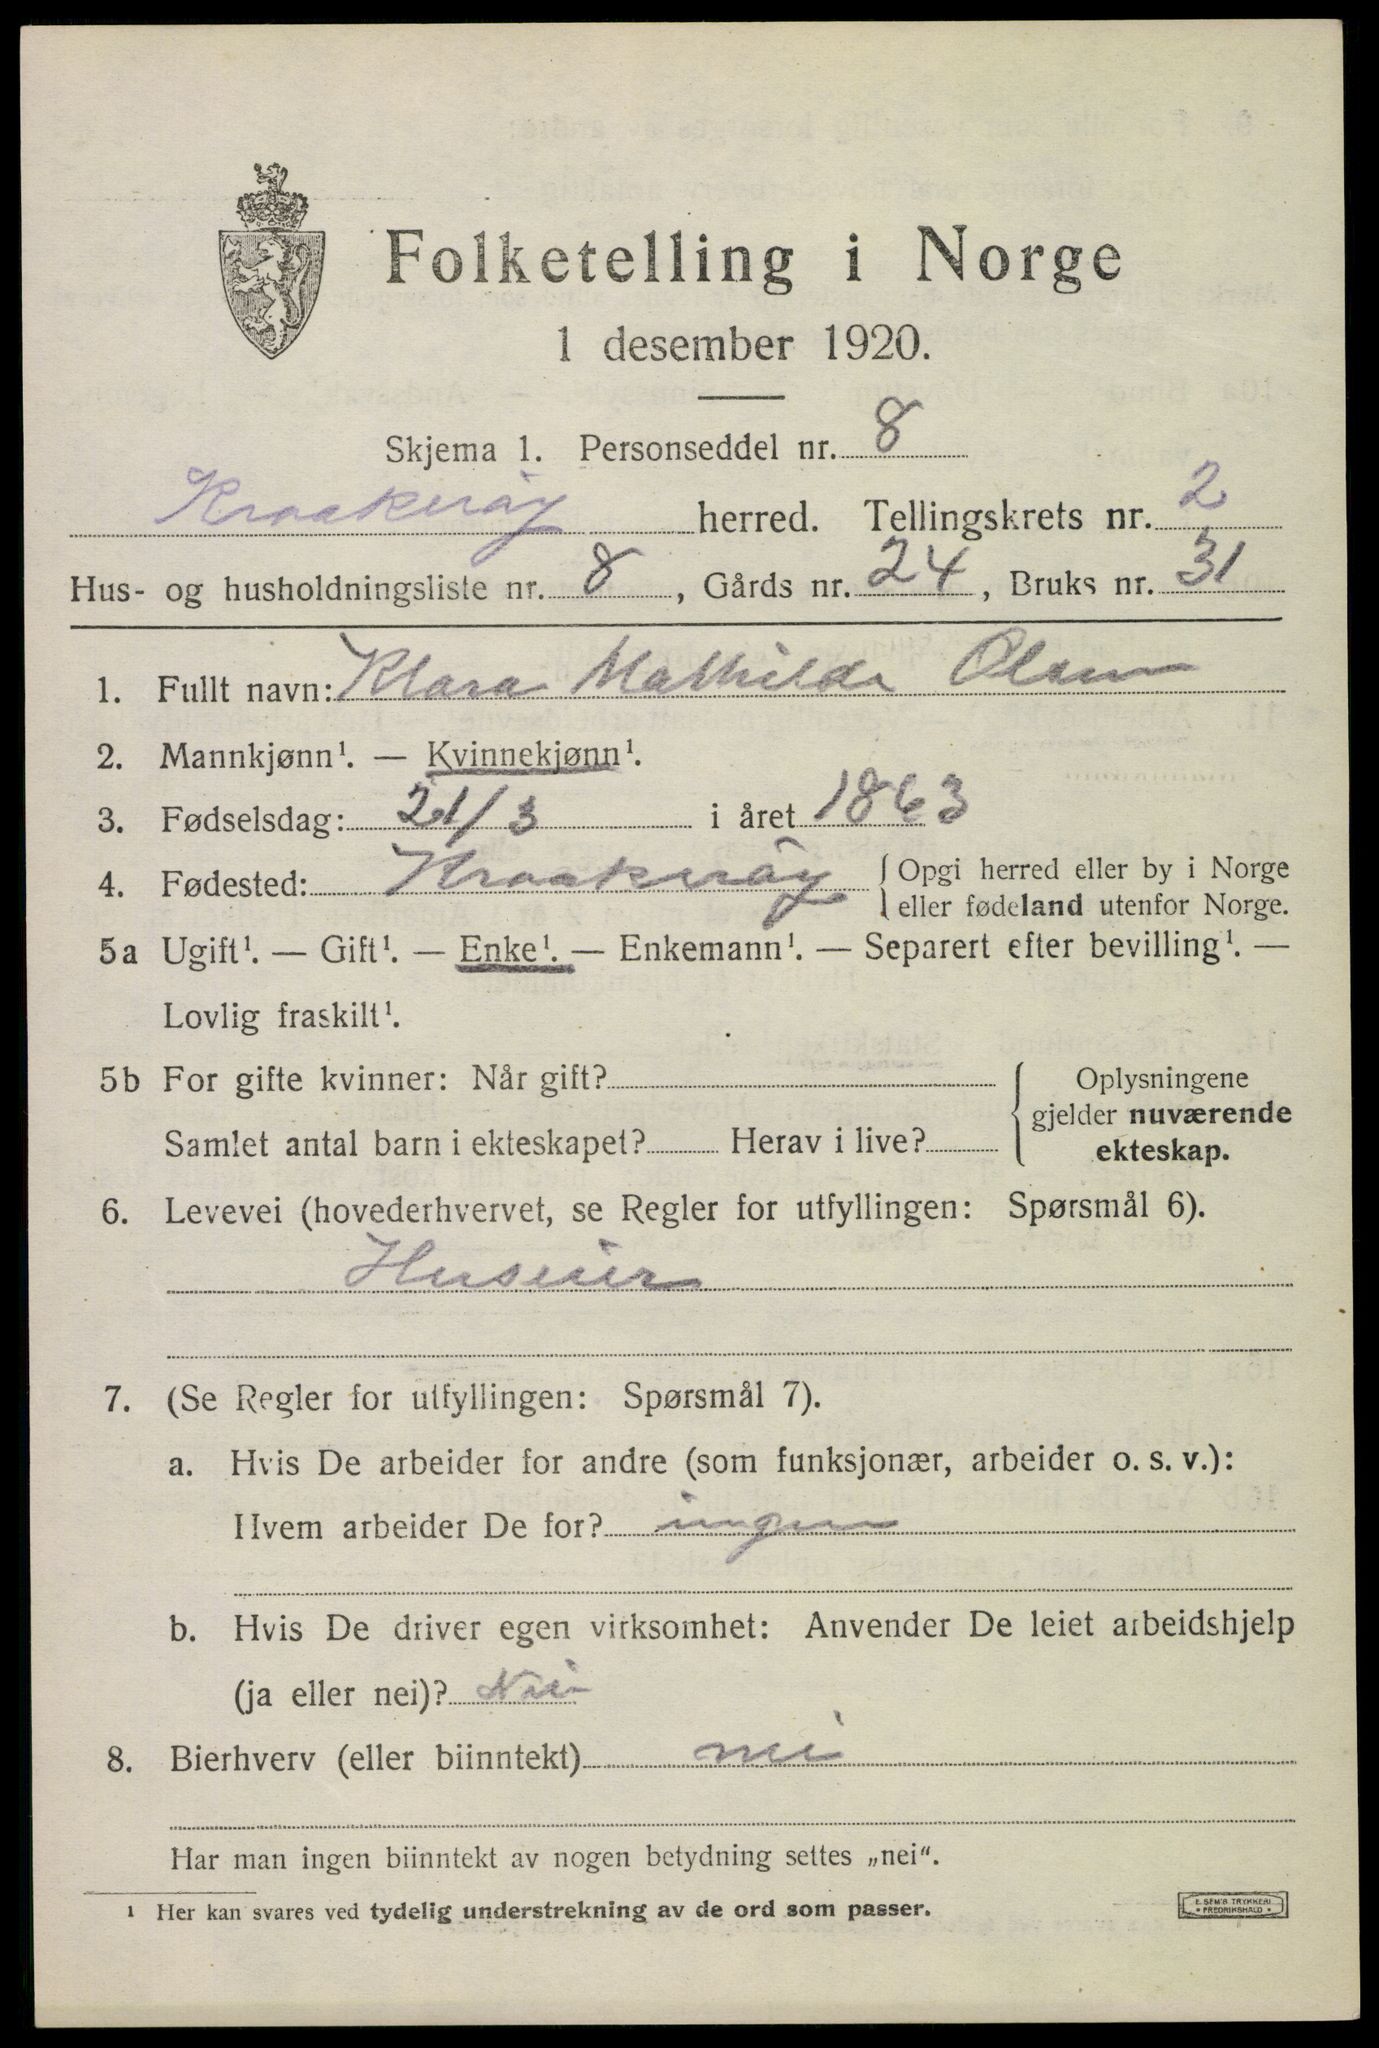 Folketelling i Norge
1 desember 1920.
Skjema 1. Personseddel nr. 8
Kraakerøy herred. Tellingskrets nr. 2
Hus- og husholdningsliste nr. 8, Gårds nr. 24, Bruks nr. 31
1. Fullt navn: Klara Mathilde Olsen
2. Mannkjønn¹. — Kvinnekjønn¹.
3. Fødselsdag: 21/3 i året 1863
4. Fødested: Kraakerøy { Opgi herred eller by i Norge
eller fødeland utenfor Norge.
5a Ugift¹. — Gift¹. — Enke¹. — Enkemann¹. — Separert efter bevilling¹. —
Lovlig fraskilt¹.
5b For gifte kvinner: Når gift? { Oplysningene
gjelder nuværende
Samlet antal barn i ekteskapet? Herav i live? ekteskap.
6. Levevei (hovederhvervet, se Regler for utfyllingen: Spørsmål 6).
Huseier
7. (Se Regler for utfyllingen: Spørsmål 7).
a. Hvis De arbeider for andre (som funksjonær, arbeider o. s. v.):
Hvem arbeider De for? ingen
b. Hvis De driver egen virksomhet: Anvender De leiet arbeidshjelp
(ja eller nei)? Nei
8. Bierhverv (eller biinntekt) nei
Har man ingen biinntekt av nogen betydning settes „nei“.
¹ Her kan svares ved tydelig understrekning av de ord som passer.
E. SEM'S TRYKKERI
• FREDRIKSHALD •